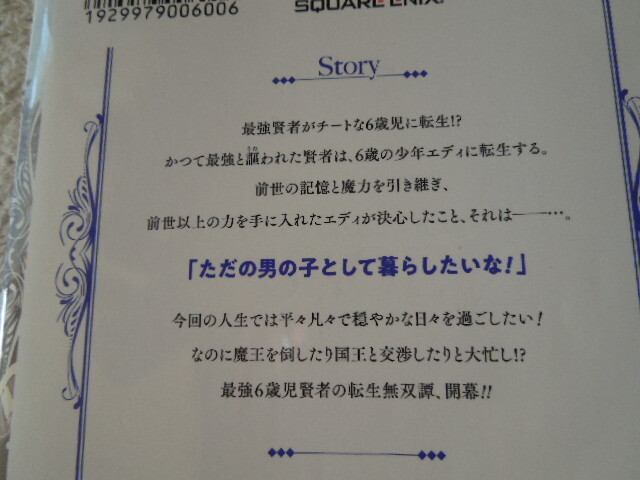 1929979006006
SQUARE ENIX.
Story
最強賢者がチートな6歳児に転生!?
かつて最強と謳われた賢者は、6歳の少年エディに転生する。
前世の記憶と魔力を引き継ぎ、
前世以上の力を手に入れたエディが決心したこと、それは――…。
「ただの男の子として暮らしたいな!」
今回の人生では平々凡々で穏やかな日々を過ごしたい!
なのに魔王を倒したり国王と交渉したりと大忙し!?
最強6歳児賢者の転生無双譚、開幕!!